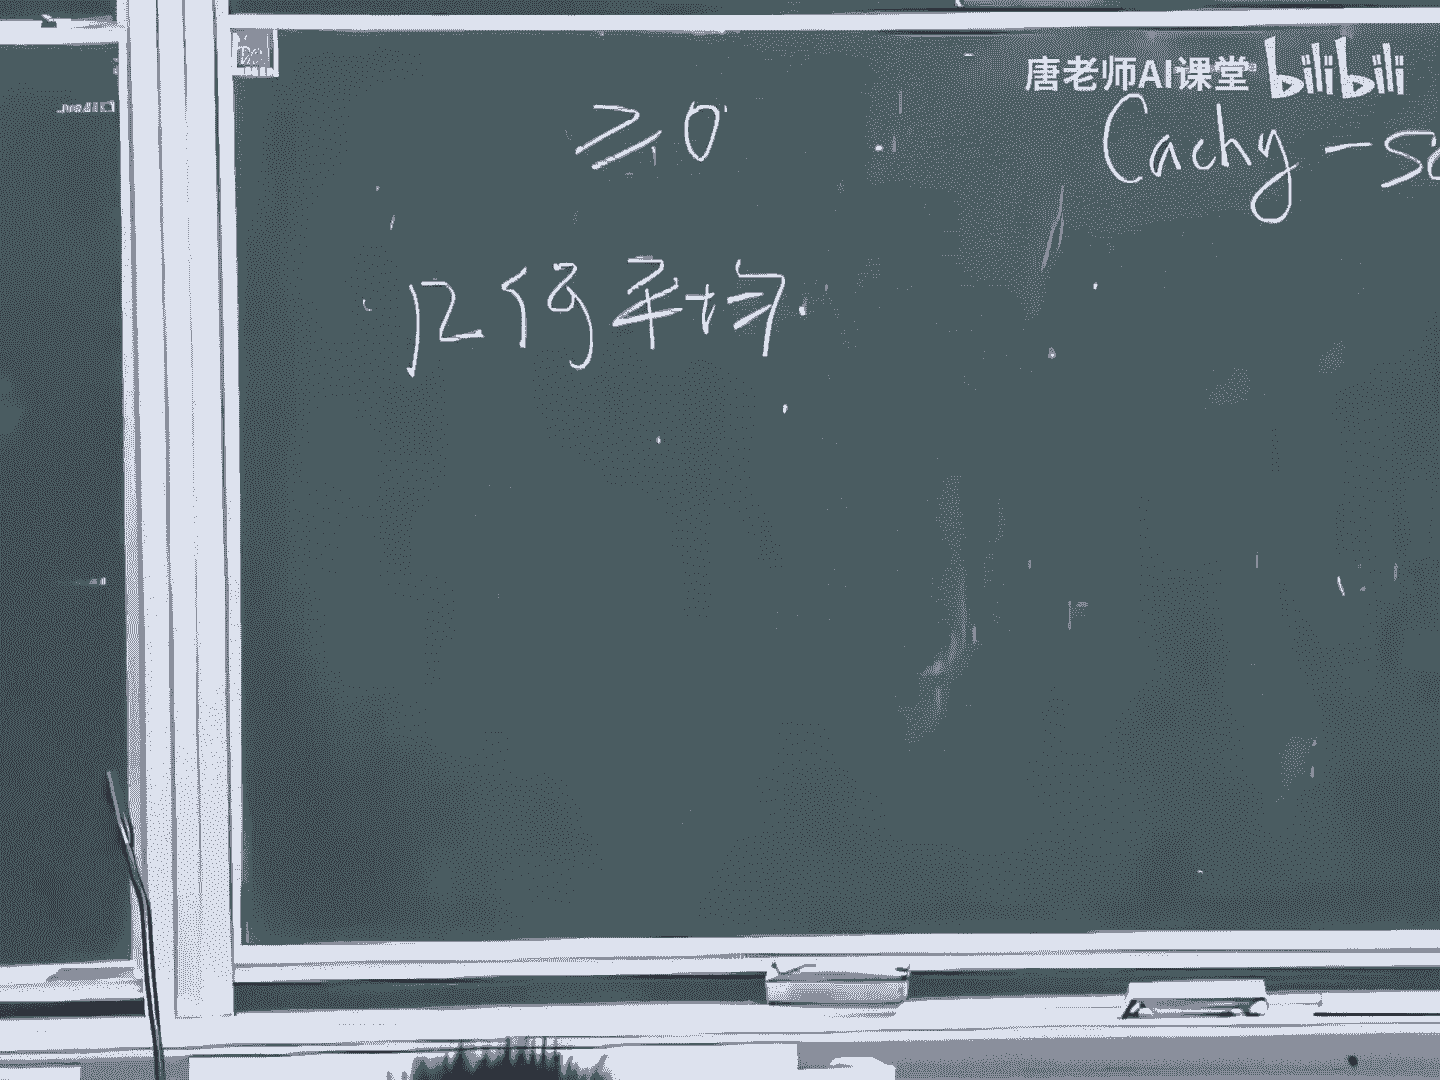 唐老师AI课堂 bilibili
≥0
Cachy-sc
几何平均